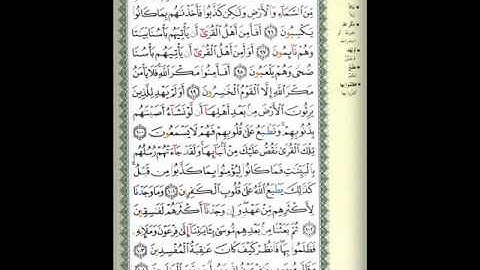 مِّنَ ٱلسَّمَآءِ وَٱلْأَرْضِ وَلَٰكِن كَذَّبُوا۟ فَأَخَذْنَٰهُم بِمَا كَانُوا۟
يَكْسِبُونَ ٩٦ أَفَأَمِنَ أَهْلُ ٱلْقُرَىٰٓ أَن يَأْتِيَهُم بَأْسُنَا بَيَٰتًا
وَهُمْ نَآئِمُونَ ٩٧ أَوَأَمِنَ أَهْلُ ٱلْقُرَىٰٓ أَن يَأْتِيَهُم بَأْسُنَا
ضُحًى وَهُمْ يَلْعَبُونَ ٩٨ أَفَأَمِنُوا۟ مَكْرَ ٱللَّهِ فَلَا يَأْمَنُ
مَكْرَ ٱللَّهِ إِلَّا ٱلْقَوْمُ ٱلْخَٰسِرُونَ ٩٩ أَوَلَمْ يَهْدِ لِلَّذِينَ
يَرِثُونَ ٱلْأَرْضَ مِنۢ بَعْدِ أَهْلِهَآ أَن لَّوْ نَشَآءُ أَصَبْنَٰهُم
بِذُنُوبِهِمْ وَنَطْبَعُ عَلَىٰ قُلُوبِهِمْ فَهُمْ لَا يَسْمَعُونَ ١٠٠
تِلْكَ ٱلْقُرَىٰ نَقُصُّ عَلَيْكَ مِنْ أَنۢبَآئِهَا وَلَقَدْ جَآءَتْهُمْ رُسُلُهُم
بِٱلْبَيِّنَٰتِ فَمَا كَانُوا۟ لِيُؤْمِنُوا۟ بِمَا كَذَّبُوا۟ مِن قَبْلُ
كَذَٰلِكَ يَطْبَعُ ٱللَّهُ عَلَىٰ قُلُوبِ ٱلْكَٰفِرِينَ ١٠١ وَمَا وَجَدْنَا
لِأَكْثَرِهِم مِّنْ عَهْدٍ وَإِن وَجَدْنَآ أَكْثَرَهُمْ لَفَٰسِقِينَ
١٠٢ ثُمَّ بَعَثْنَا مِنۢ بَعْدِهِم مُّوسَىٰ بِـَٔايَٰتِنَآ إِلَىٰ فِرْعَوْنَ وَمَلَإِيهِۦ
فَظَلَمُوا۟ بِهَا فَٱنظُرْ كَيْفَ كَانَ عَٰقِبَةُ ٱلْمُفْسِدِينَ ١٠٣